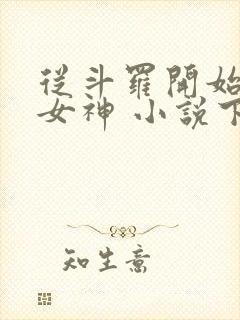 從斗羅開始
女神 小說下
知生意